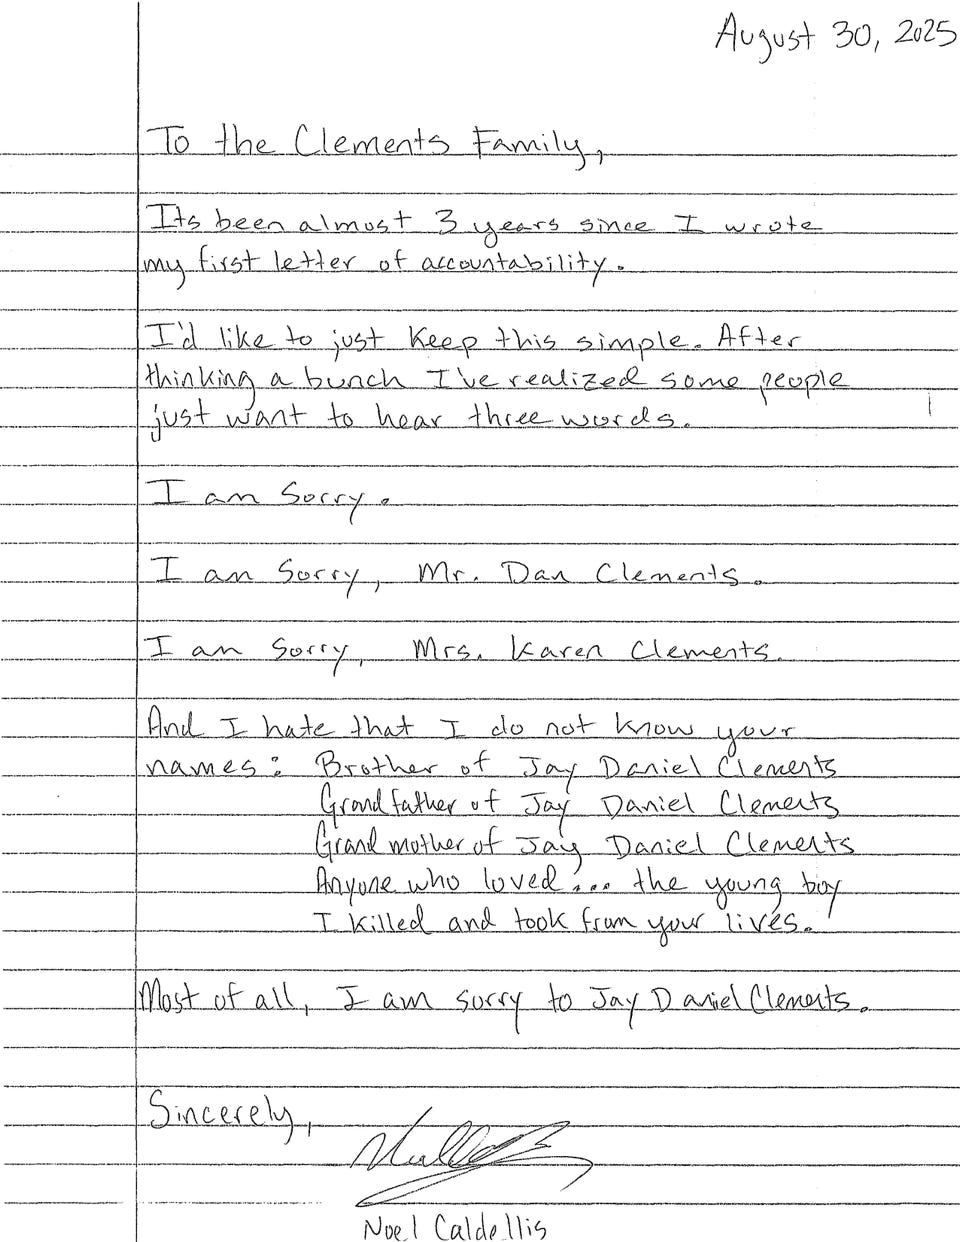 August 30, 2025
To the Clements Family,
Its been almost 3 years since I wrote
my first letter of accountability.
I'd like to just keep this simple. After
thinking a bunch I've realized some people
just want to hear three words.
I am sorry.
I am sorry, Mr. Dan Clements.
I am sorry, Mrs. Karen Clements.
And I hate that I do not know your
names: Brother of Jay Daniel Clements
Grandfather of Jay Daniel Clements
Grandmother of Jay Daniel Clements
Anyone who loved... the young boy
I killed and took from your lives.
Most of all, I am sorry to Jay Daniel Clements.
Sincerely,
Noel Caldellis